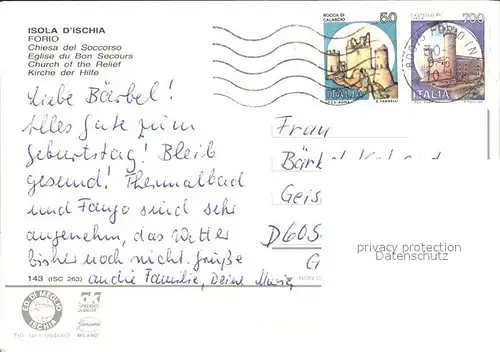 ISOLA D'ISCHIA
FORIO
Chiesa del Soccorso
Eglise du Bon Secours
Church of the Relief
Kirche der Hilfe
ROCCA DI
CALASCIO
50
ITALIA
700
ITALIA
FORIO
Liebe Bärbel!
Alles Gute zum
Geburtstag! Bleib
gesund! Thermalbad
und Fango sind sehr
angenehm, das Wetter
bisher noch nicht. Grüße
an die Familie, Deine
Frau
Geis
D605
privacy protection
Datenschutz
143 (ISC 263)
ED. DI MEGLIO
ISCHIA
MILANO